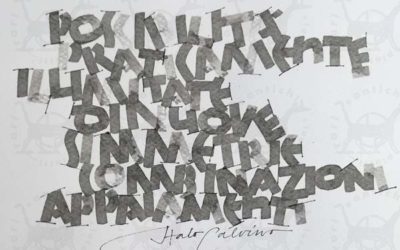 POSSIBILITÀ
PRATICAMENTE
ILLIMITATE
DI NUOVE
SIMMETRIE
COMBINAZIONI
APPAIAMENTI
Italo Calvino